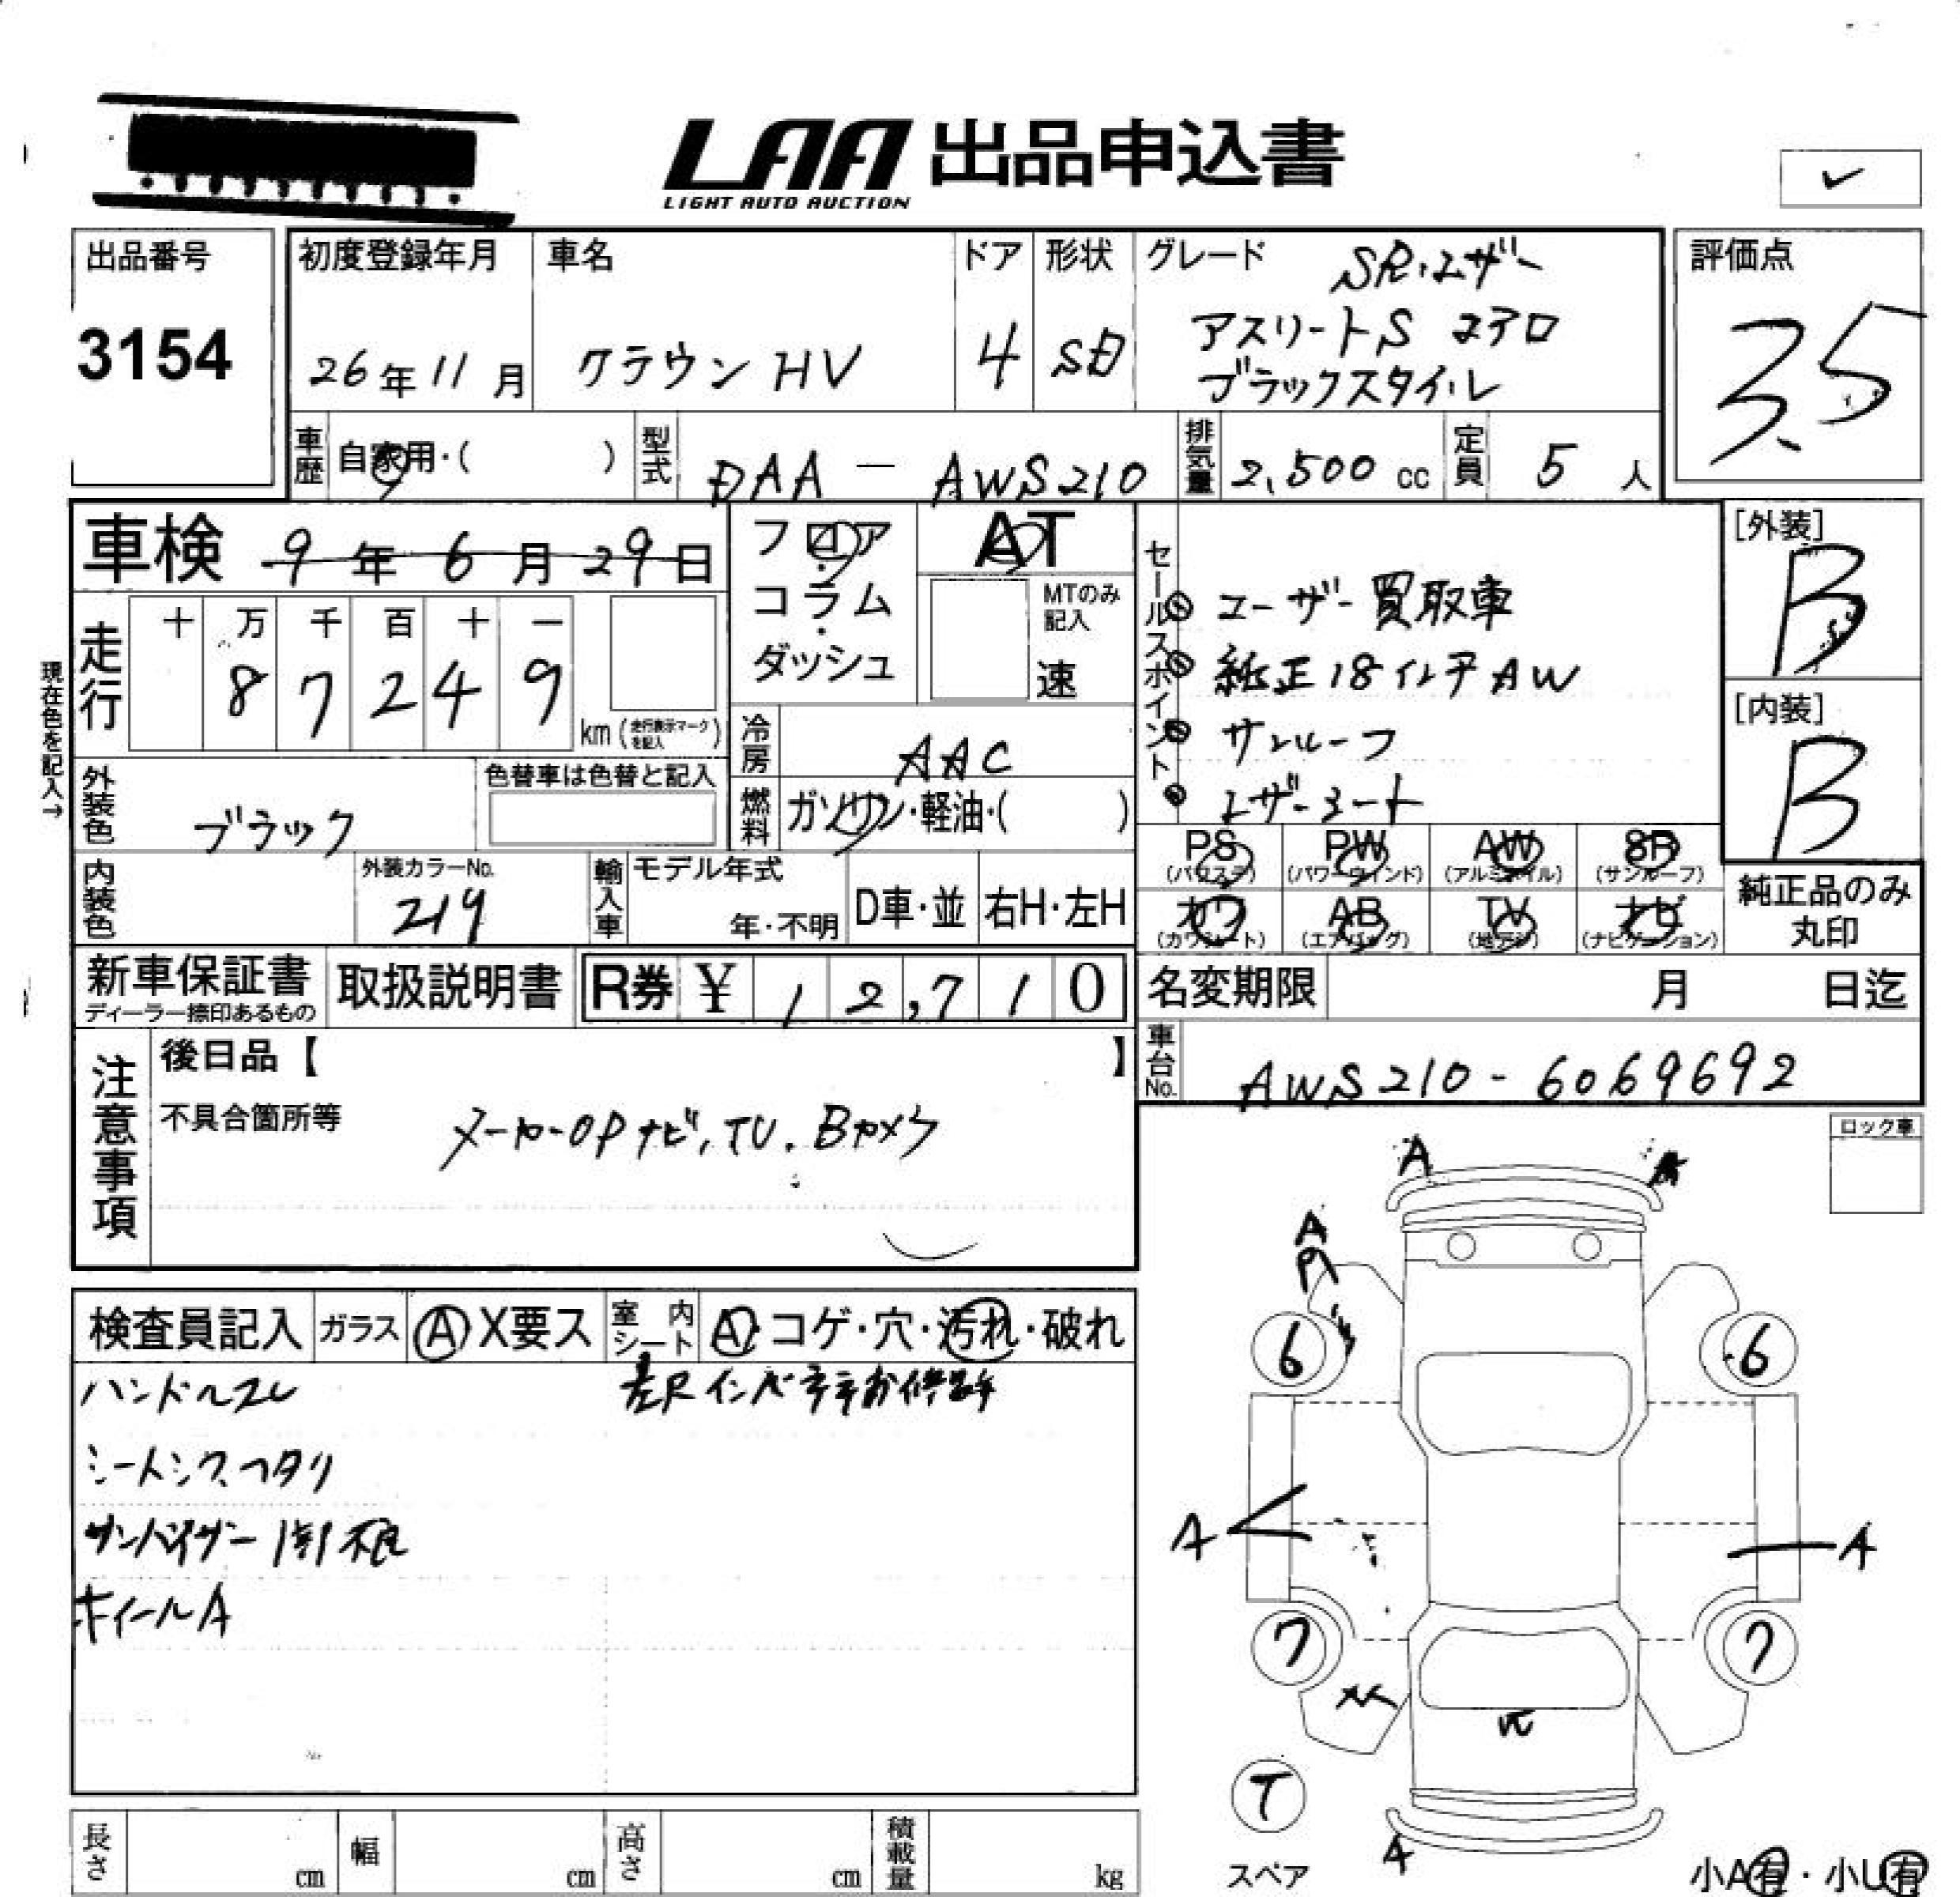 LAA 出品申込書
LIGHT AUTO AUCTION
出品番号
3154
初度登録年月
26年11月
車名
クラウン HV
ドア
4
形状
SD
グレード
SR・レザー
アスリートS
ブラックスタイル
評価点
3.5
車歴
自家用・( )
型式
DAA — AWS210
排気量
2,500 cc
定員
5 人
車検 9年6月29日
フロア・コラム・ダッシュ
AT
MTのみ記入
速
セールスポイント
ユーザー買取車
純正18インチAW
サンルーフ
レザーシート
[外装]
B
[内装]
B
現在色を記入→
走行
十 万 千 百 十 一
8 7 2 4 9
km (走行表示マークを記入)
冷房
AAC
燃料
ガソリン・軽油・( )
外装色
ブラック
色替車は色替と記入
内装色
外装カラーNo.
219
輸入車
モデル年式
年・不明
D車・並
右H・左H
PS (パワステ)
PW (パワーウインド)
AW (アルミホイル)
SR (サンルーフ)
カワ (カワシート)
AB (エアバッグ)
TV (地デジ)
ナビ (ナビゲーション)
純正品のみ
丸印
新車保証書
ディーラー捺印あるもの
取扱説明書
R券 ¥ 12,710
名変期限
月 日迄
注意事項
後日品【 】
不具合箇所等
メーカーOPナビ,TV.Bカメラ
車台No.
AWS210-6069692
ロック車
検査員記入
ガラス
A X要ス
室内シート
A・コゲ・穴・汚れ・破れ
ハンドルスレ
シートシワ、ヘタリ
サンバイザー
ホイールA
A
A
A
6
6
A
A
7
7
T
スペア
A
小A有・小U有
長さ
cm
幅
cm
高さ
cm
積載量
kg